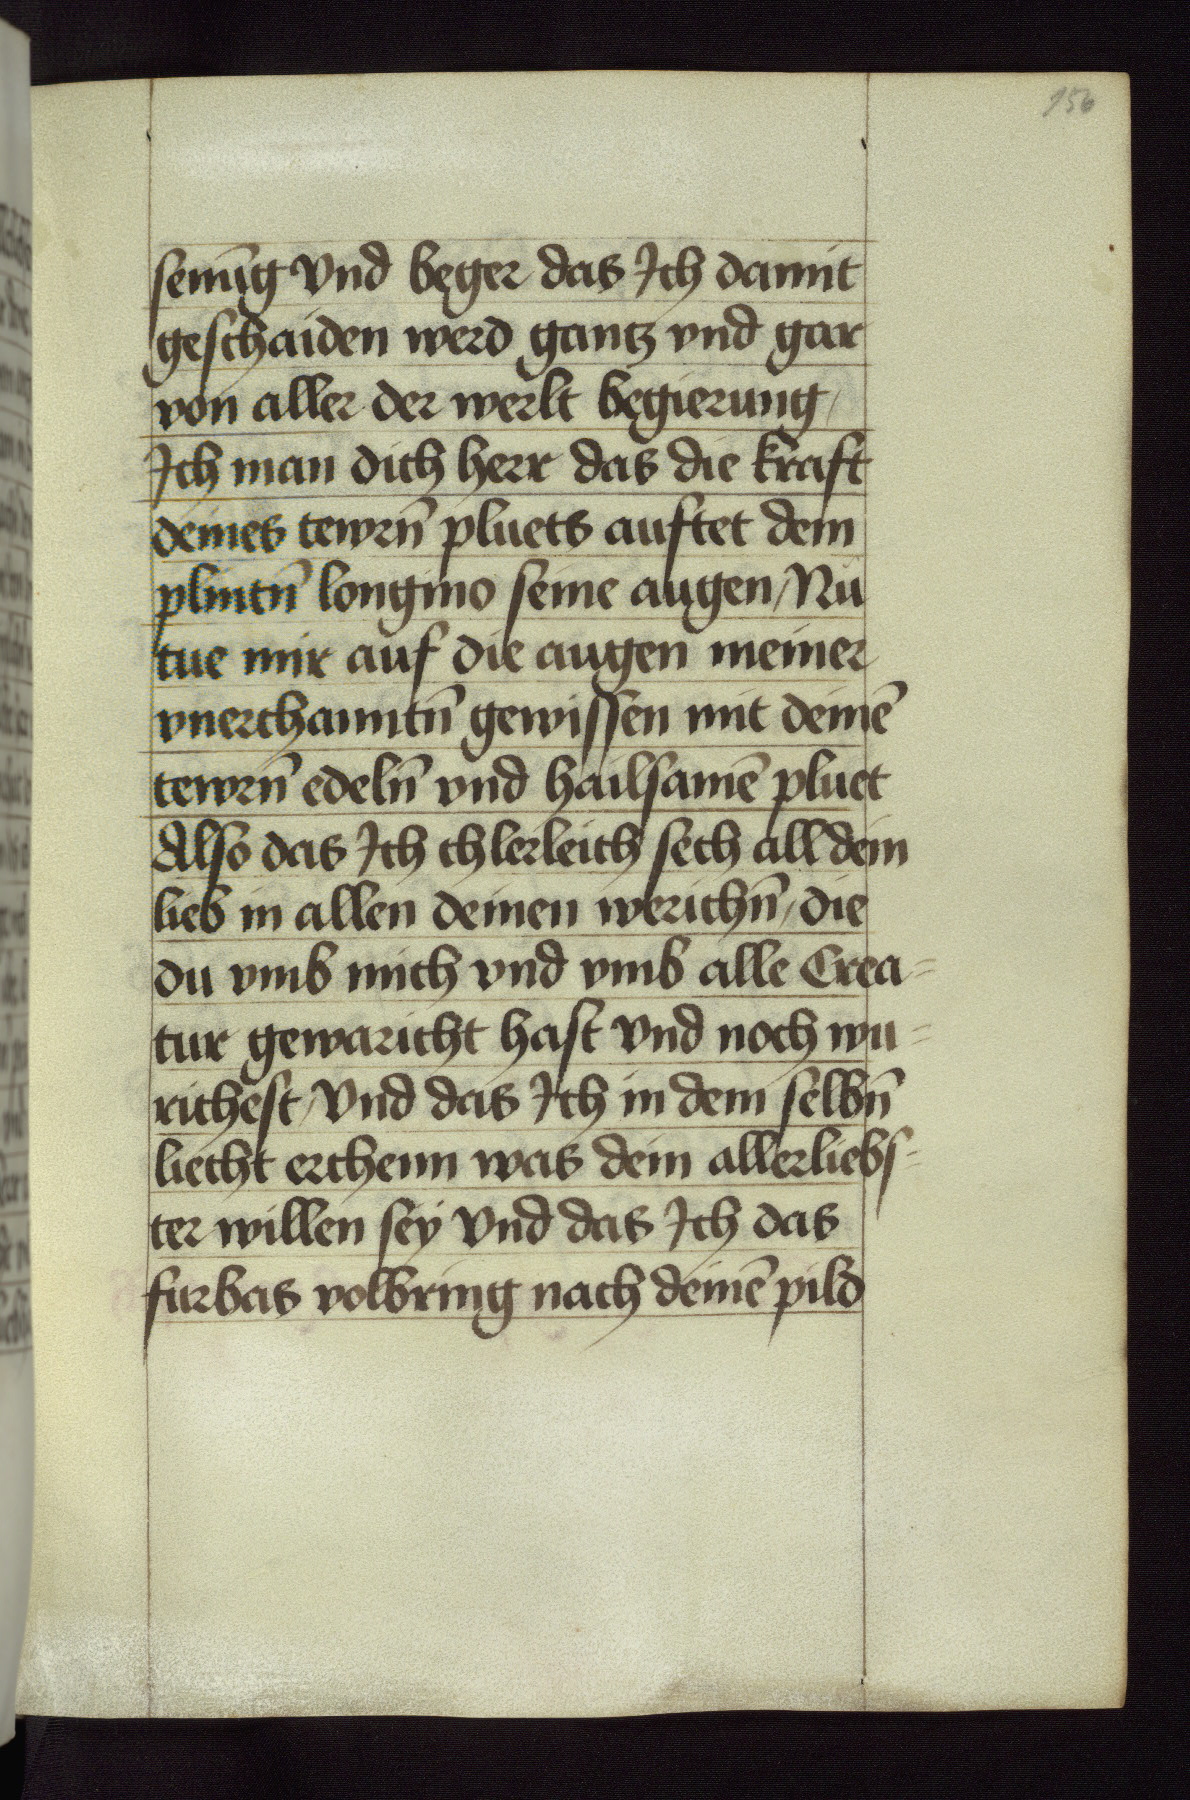 156
senūg vnd beger das Ich damit
geschaiden werd gantz vnd gar
von aller der werlt begierung /
Ich man dich herr das die kraft
deines tewrn̄ pluets auftet dem
plintn̄ longino seine augen / Nu
tue mir auf die augen meiner
vnerchanntn̄ gewissen mit deinē
tewrn̄ edeln̄ vnd hailsamē pluet
Also das Ich chlerleich sech all dein
lieb in allen deinen werichn̄ / die
du vmb mich vnd vmb alle Crea=
tur gewaricht hast vnd noch wu=
richest / Vnd das Ich in dem selbn̄
liecht erchenn was dein allerliebs=
ter willen seÿ Vnd das Ich das
furbas volbring nach deinē pild